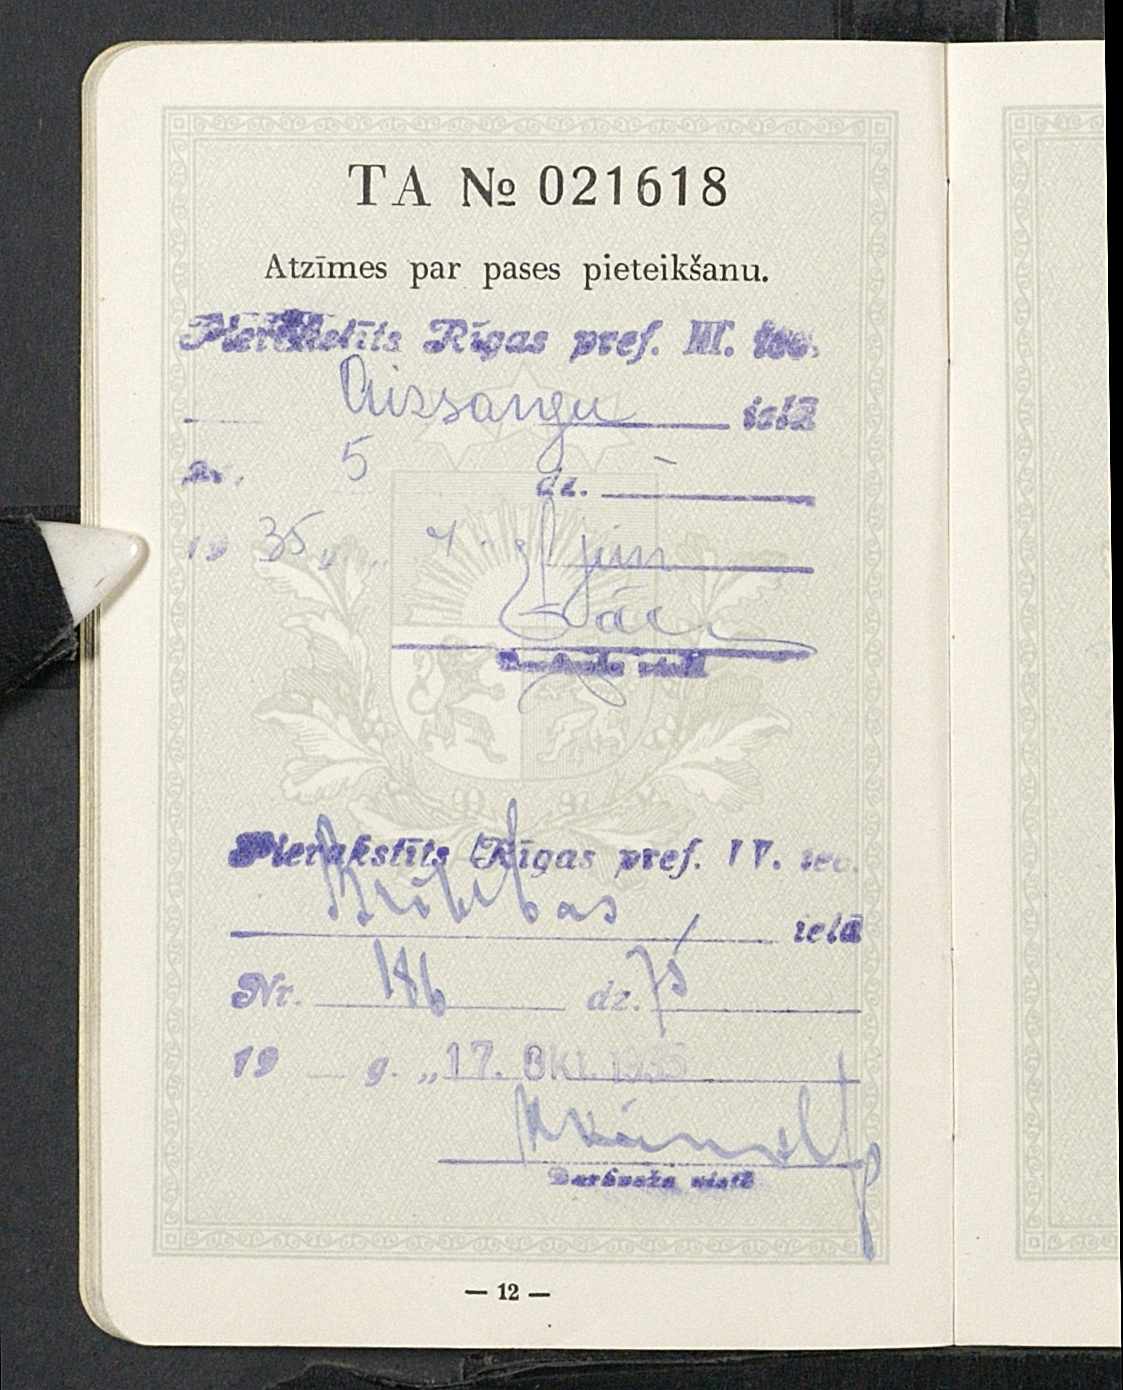 TA № 021618
Atzīmes par pases pieteikšanu.
Pierakstīts Rīgas pref. III. iec.
Aizsargu ielā
Nr. 5 dz. —
1935 g. „ 4. jūn
Darbveža vietā
Pierakstīts Rīgas pref. IV. iec.
Brīvības ielā
Nr. 186 dz. 75
19 g. „17. OKT. 1935
Darbveža vietā
— 12 —